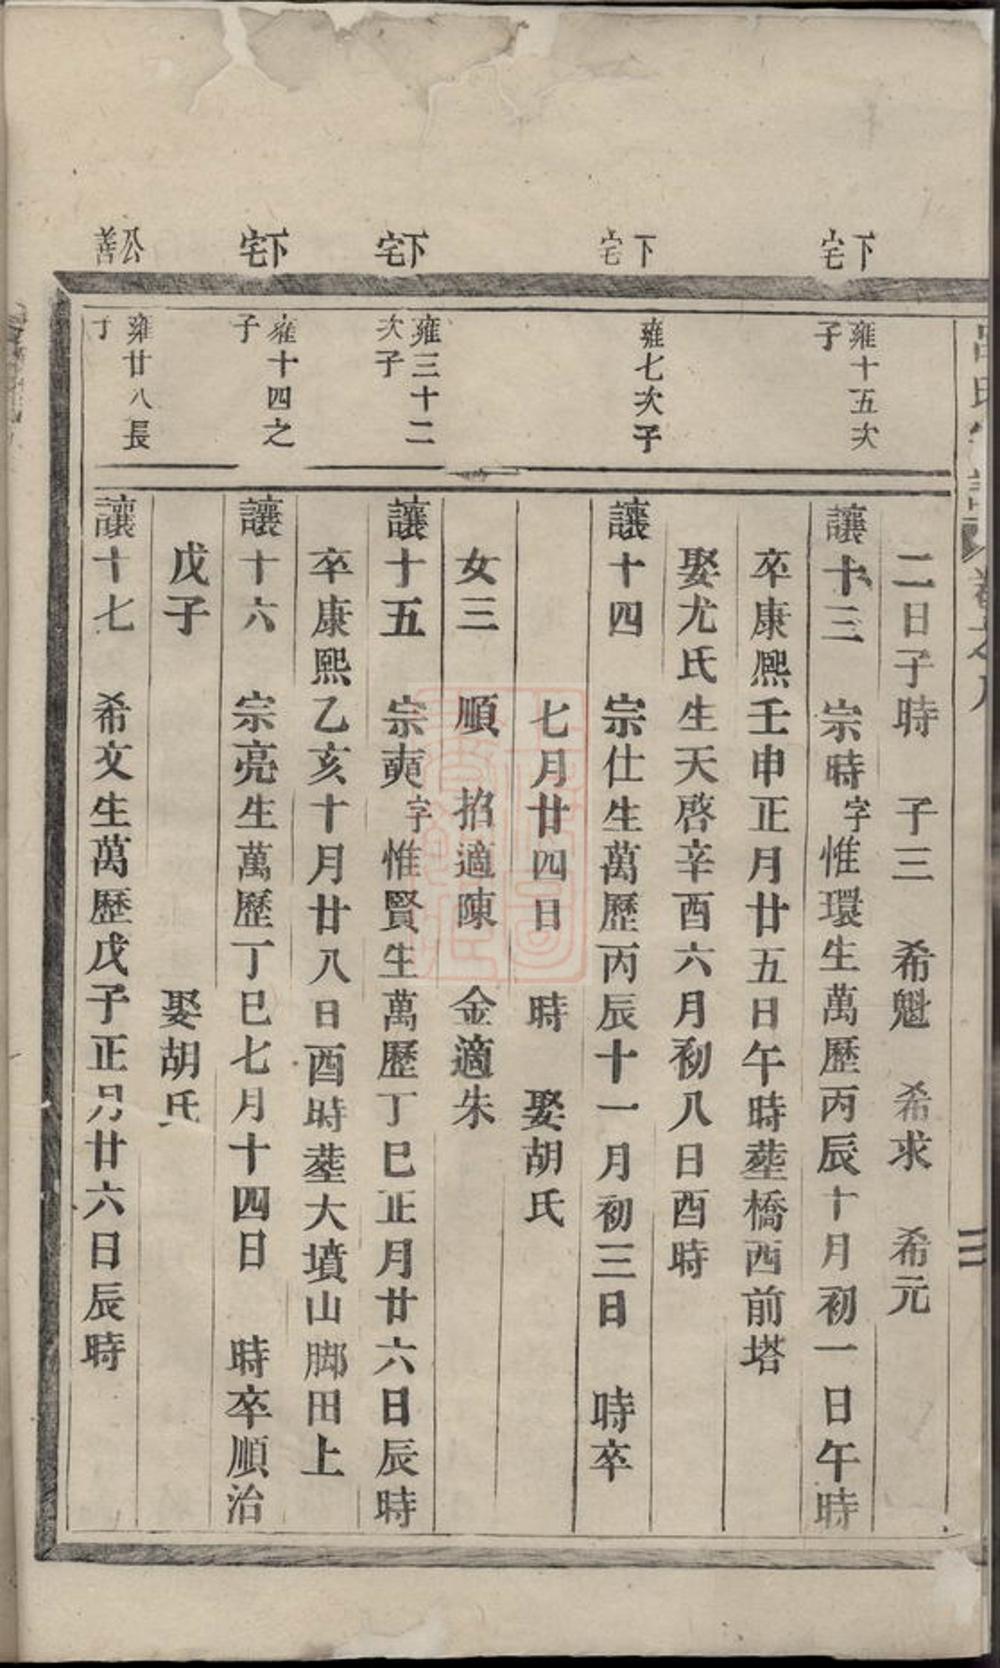 下宅
下宅
下宅
下宅
公善
雍十五次
子
雍七次子
雍三十二
次子
雍十四之
子
雍廿八長
子
二日子時 子三 希魁 希求 希元
讓十三 宗時字惟環生萬歷丙辰十月初一日午時
卒康熙壬申正月廿五日午時塟橋西前塔
娶尤氏生天啓辛酉六月初八日酉時
讓十四 宗仕生萬歷丙辰十一月初三日 時卒
七月廿四日 時 娶胡氏
女三 順 招適陳 金適朱
讓十五 宗奭字惟賢生萬歷丁巳正月廿六日辰時
卒康熙乙亥十月廿八日酉時塟大墳山脚田上
讓十六 宗亮生萬歷丁巳七月十四日 時卒順治
戊子 娶胡氏
讓十七 希文生萬歷戊子正月廿六日辰時